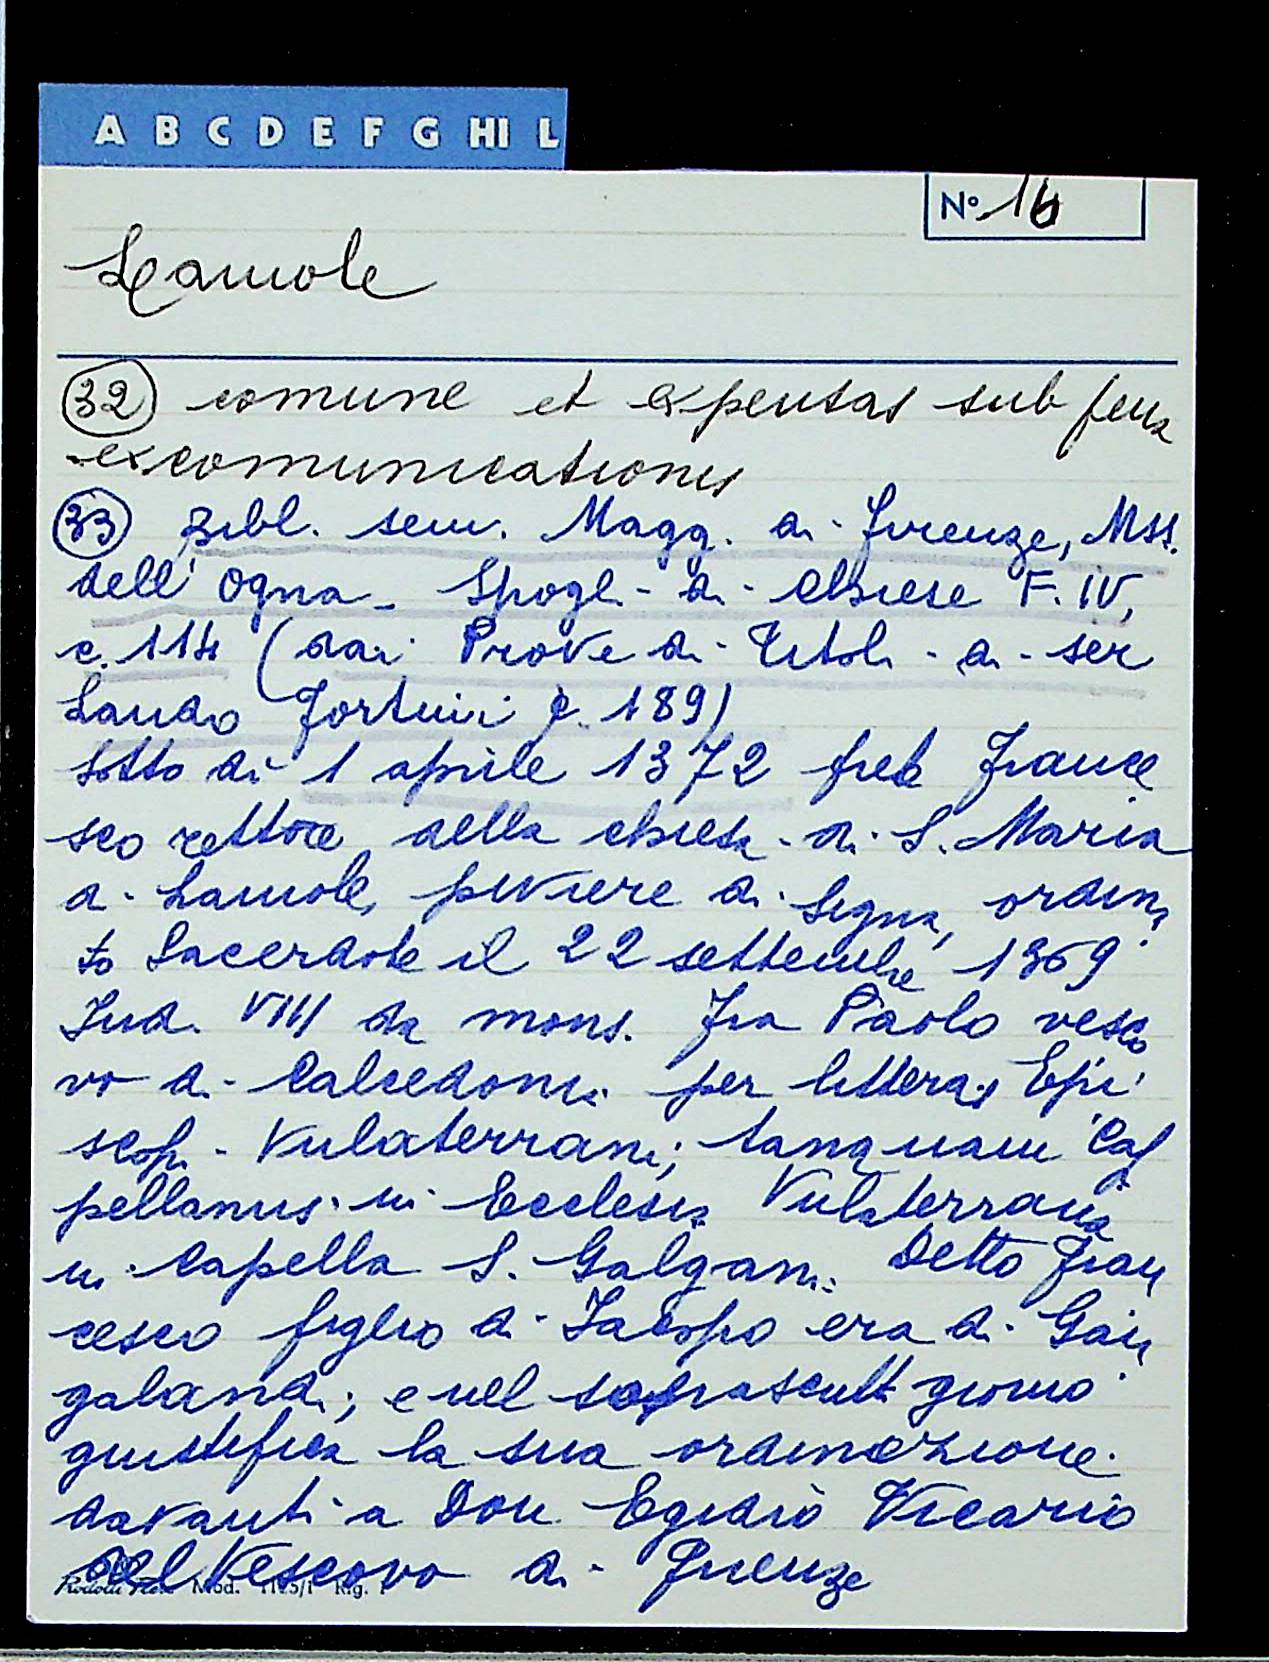 A B C D E F G HI L
N° 16
Lamole
32 comune et expensas sub pena
excomunicationis
33 Bibl. sem. Magg. di Firenze, Mss.
dell'Ogna - Spogli di Chiese F. IV,
c. 114 (dai Prove di Titoli di ser
Lando Fortini c. 189)
sotto di 1 aprile 1372 prete France
sco rettore della chiesa di S. Maria
a Lamole, piviere di Signa, ordina
to Sacerdote il 22 settembre 1369
Ind. VIII da mons. Fra Paolo vesco
vo di Calcedoni per litteras Epi
scopi Vulaterrani; tanquam Cap
pellanus in Ecclesia Vulaterrana
in Capella S. Galgani. Detto Fran
cesco figlio di Jacopo era di Gan
galandi; e nel soprascritt giorno
giustifica la sua ordinazione
davanti a Don Egidio Vicario
del Vescovo di Firenze
Mod. Rig. 1